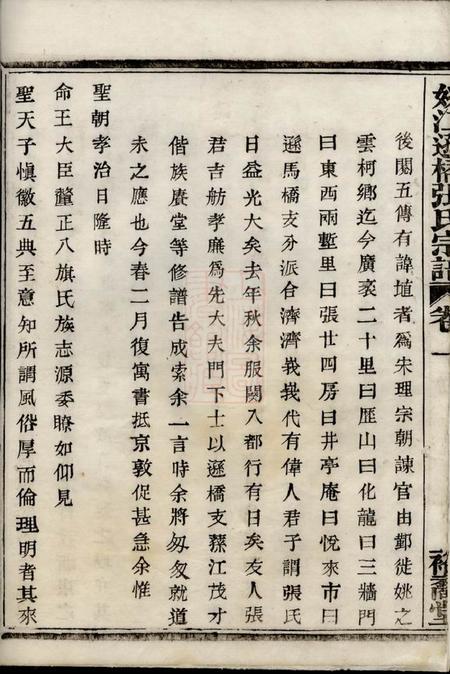 姚江遜橋張氏宗譜 卷一
後閱五傳有諱埴者爲朱理宗朝諫官由鄞徙姚之
雲柯鄉迄今廣袤二十里曰歷山曰化龍曰三牆門
曰東西兩塹里曰張廿四房曰井亭庵曰悅來市曰
遜馬橋支分派合濟濟峩峩代有偉人君子謂張氏
日益光大矣去年秋余服闋入都行有日矣友人張
君吉舫孝廉爲先大夫門下士以遜橋支蓀江茂才
偕族賡堂等修譜告成索余一言時余將匆匆就道
未之應也今春二月復寓書抵京敦促甚急余惟
聖朝孝治日隆時
命王大臣釐正八旗氏族志源委瞭如仰見
聖天子愼徽五典至意知所謂風俗厚而倫理明者其來